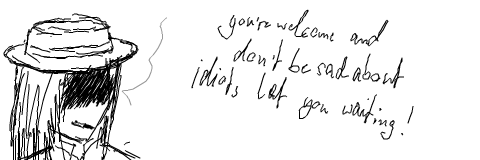 you're welcome and
don't be sad about
idiots let you waiting!